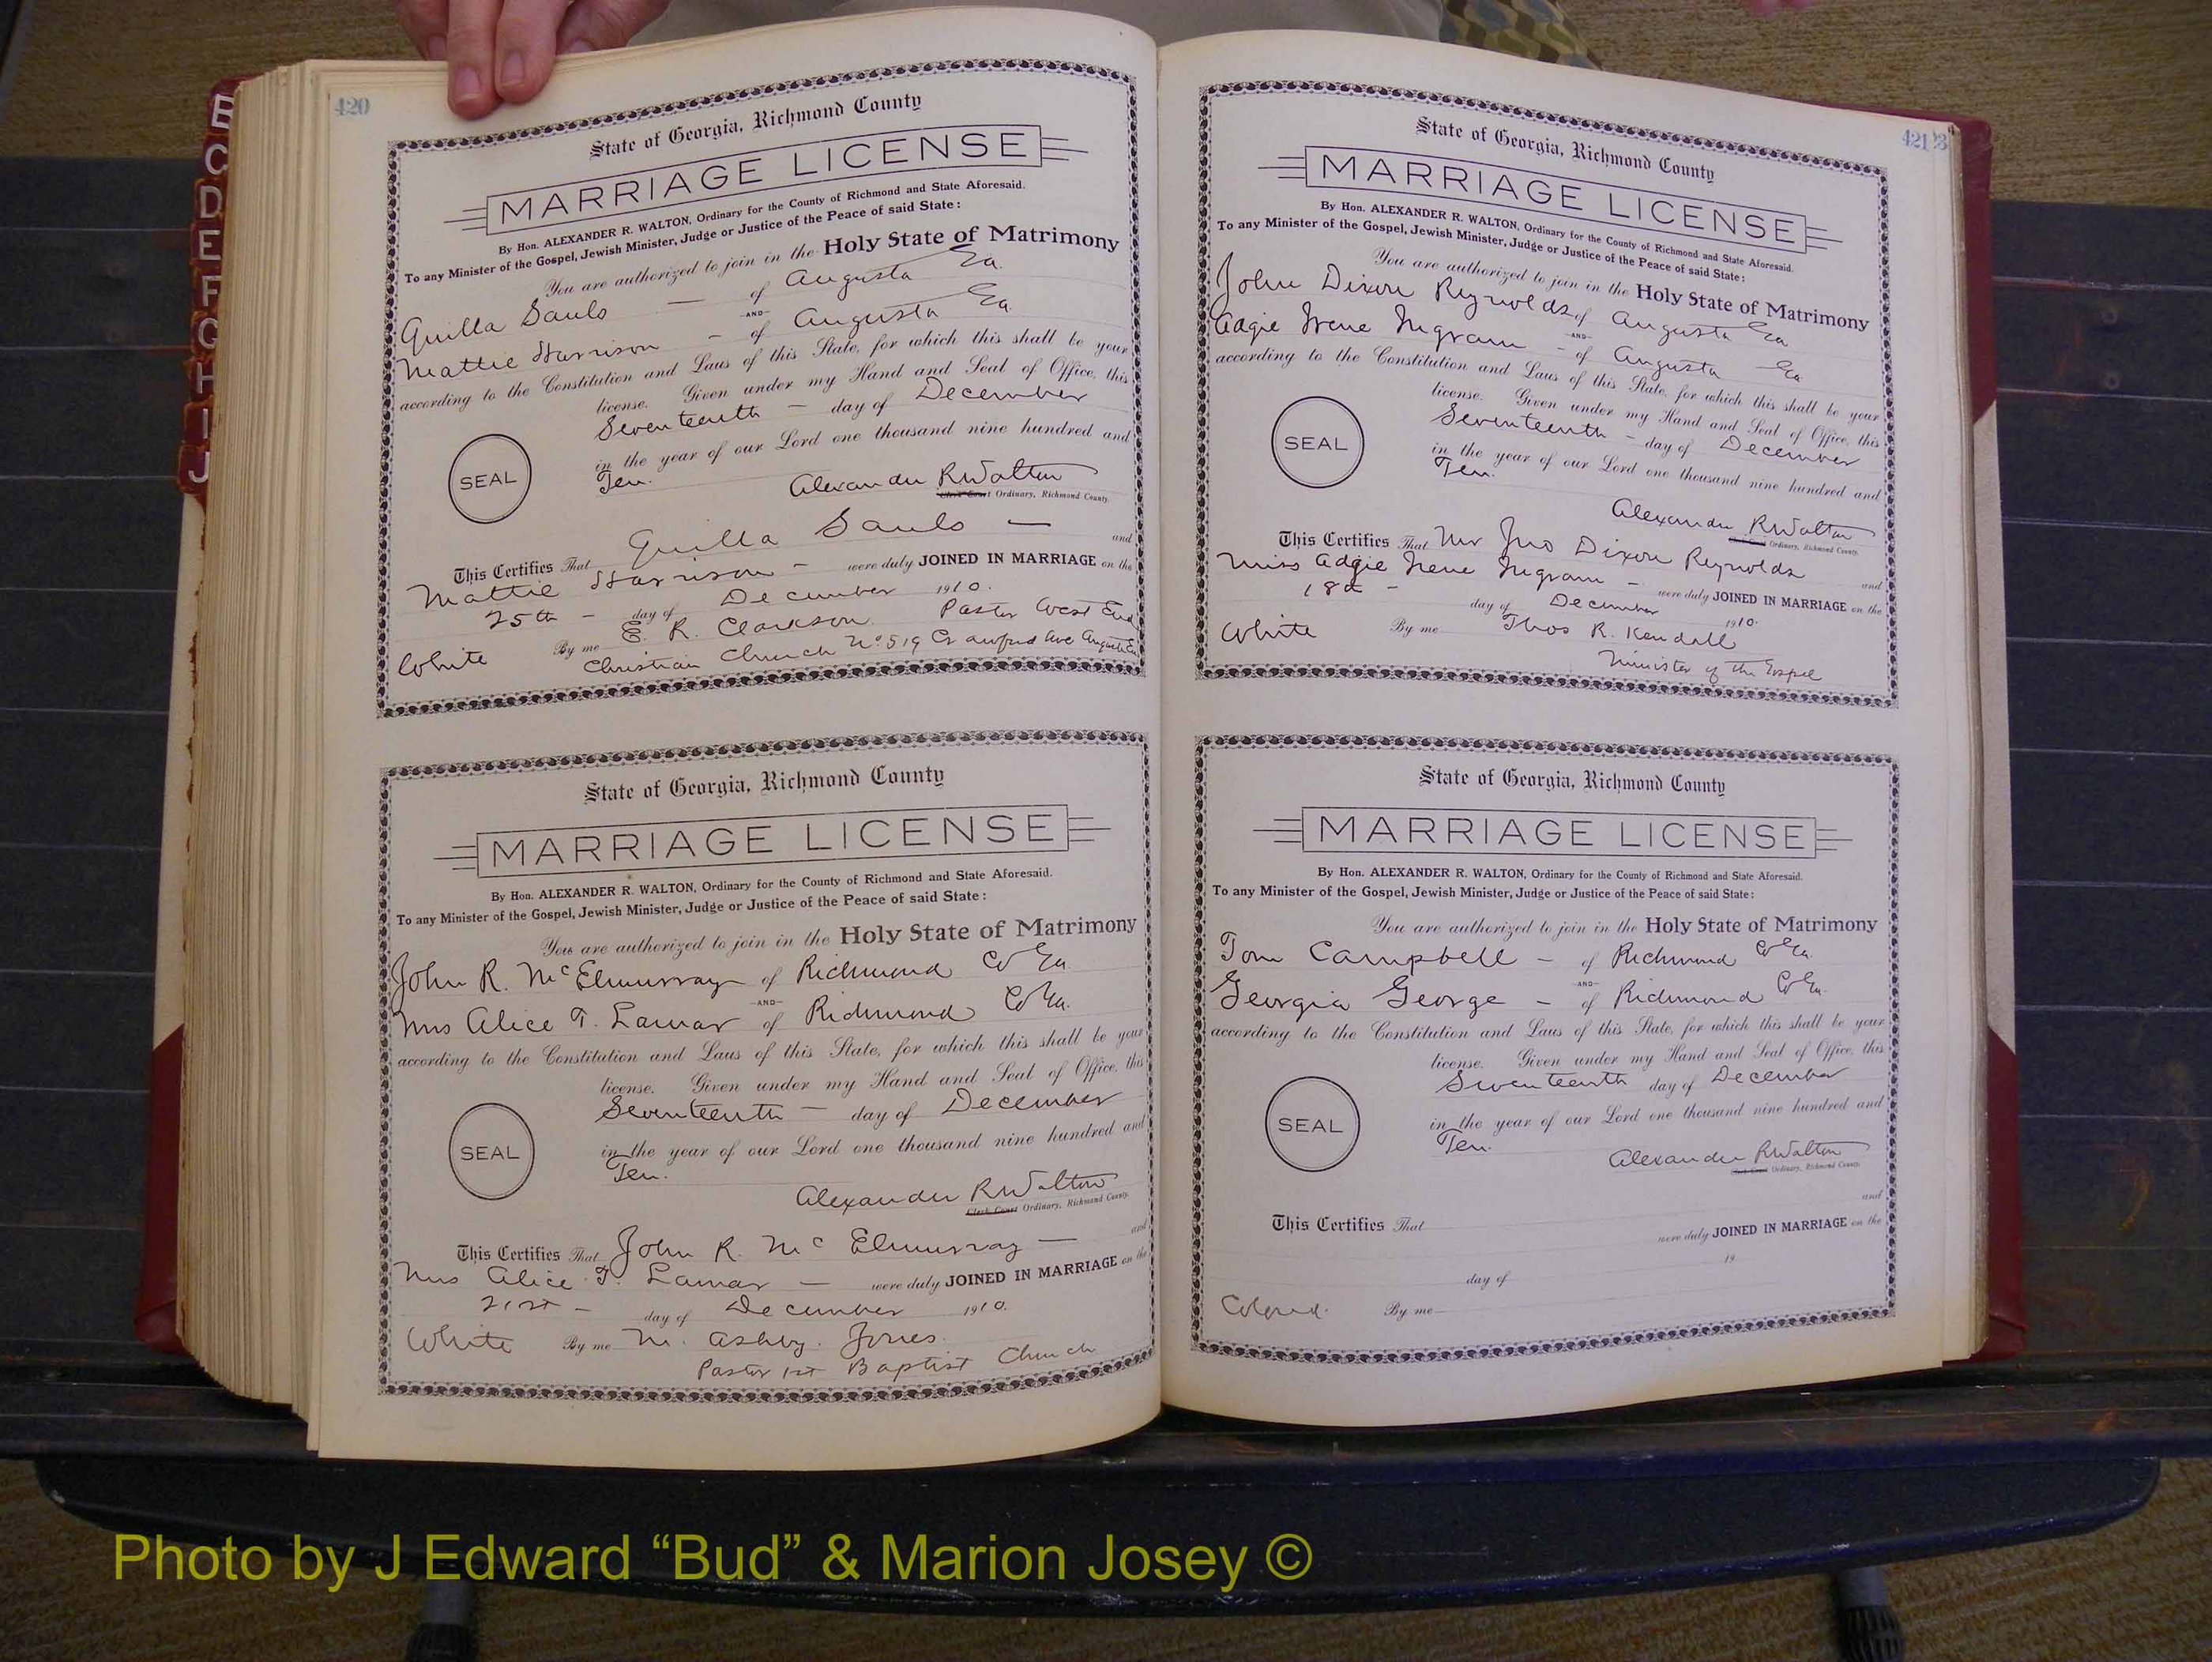 B
C
D
E
F
G
H
I
J
420
State of Georgia, Richmond County
MARRIAGE LICENSE
By Hon. ALEXANDER R. WALTON, Ordinary for the County of Richmond and State Aforesaid.
To any Minister of the Gospel, Jewish Minister, Judge or Justice of the Peace of said State:
You are authorized to join in the Holy State of Matrimony
Quilla Sauls — of Augusta Ga.
-AND-
Mattie Harrison - of Augusta Ga.
according to the Constitution and Laws of this State, for which this shall be your
license. Given under my Hand and Seal of Office, this
Seventeenth — day of December
SEAL
in the year of our Lord one thousand nine hundred and
Ten.
Alexander R Walton
Clerk Court Ordinary, Richmond County.
This Certifies That Quilla Sauls — and
Mattie Harrison - were duly JOINED IN MARRIAGE on the
25th - day of December 1910.
White By me E. R. Clarkson Pastor West End
Christian Church No 519 Crawford Ave Augusta Ga
State of Georgia, Richmond County
MARRIAGE LICENSE
By Hon. ALEXANDER R. WALTON, Ordinary for the County of Richmond and State Aforesaid.
To any Minister of the Gospel, Jewish Minister, Judge or Justice of the Peace of said State:
You are authorized to join in the Holy State of Matrimony
John R. McElmurray of Richmond Co Ga.
-AND-
Mrs Alice T. Lamar of Richmond Co Ga.
according to the Constitution and Laws of this State, for which this shall be your
license. Given under my Hand and Seal of Office, this
Seventeenth — day of December
SEAL
in the year of our Lord one thousand nine hundred and
Ten.
Alexander R Walton
Clerk Court Ordinary, Richmond County.
This Certifies That John R. Mc Elmurray — and
Mrs Alice T. Lamar — were duly JOINED IN MARRIAGE on the
21st - day of December 1910.
White By me M. Ashby. Jones.
Pastor 1st Baptist Church
421
State of Georgia, Richmond County
MARRIAGE LICENSE
By Hon. ALEXANDER R. WALTON, Ordinary for the County of Richmond and State Aforesaid.
To any Minister of the Gospel, Jewish Minister, Judge or Justice of the Peace of said State:
You are authorized to join in the Holy State of Matrimony
John Dixon Reynolds of Augusta Ga.
-AND-
Adgie Irene Ingram - of Augusta Ga
according to the Constitution and Laws of this State, for which this shall be your
license. Given under my Hand and Seal of Office, this
Seventeenth - day of December
SEAL
in the year of our Lord one thousand nine hundred and
Ten.
Alexander R Walton
Clerk Court Ordinary, Richmond County.
This Certifies That Mr Jno Dixon Reynolds and
Miss Adgie Irene Ingram - were duly JOINED IN MARRIAGE on the
18th - day of December 1910.
White By me Thos R. Kendall
Minister of the Gospel
State of Georgia, Richmond County
MARRIAGE LICENSE
By Hon. ALEXANDER R. WALTON, Ordinary for the County of Richmond and State Aforesaid.
To any Minister of the Gospel, Jewish Minister, Judge or Justice of the Peace of said State:
You are authorized to join in the Holy State of Matrimony
Tom Campbell - of Richmond Co Ga.
-AND-
Georgia George - of Richmond Co Ga.
according to the Constitution and Laws of this State, for which this shall be your
license. Given under my Hand and Seal of Office, this
Seventeenth day of December
SEAL
in the year of our Lord one thousand nine hundred and
Ten.
Alexander R Walton
Clerk Court Ordinary, Richmond County.
This Certifies That and
were duly JOINED IN MARRIAGE on the
day of 19
Colored. By me
Photo by J Edward “Bud” & Marion Josey ©